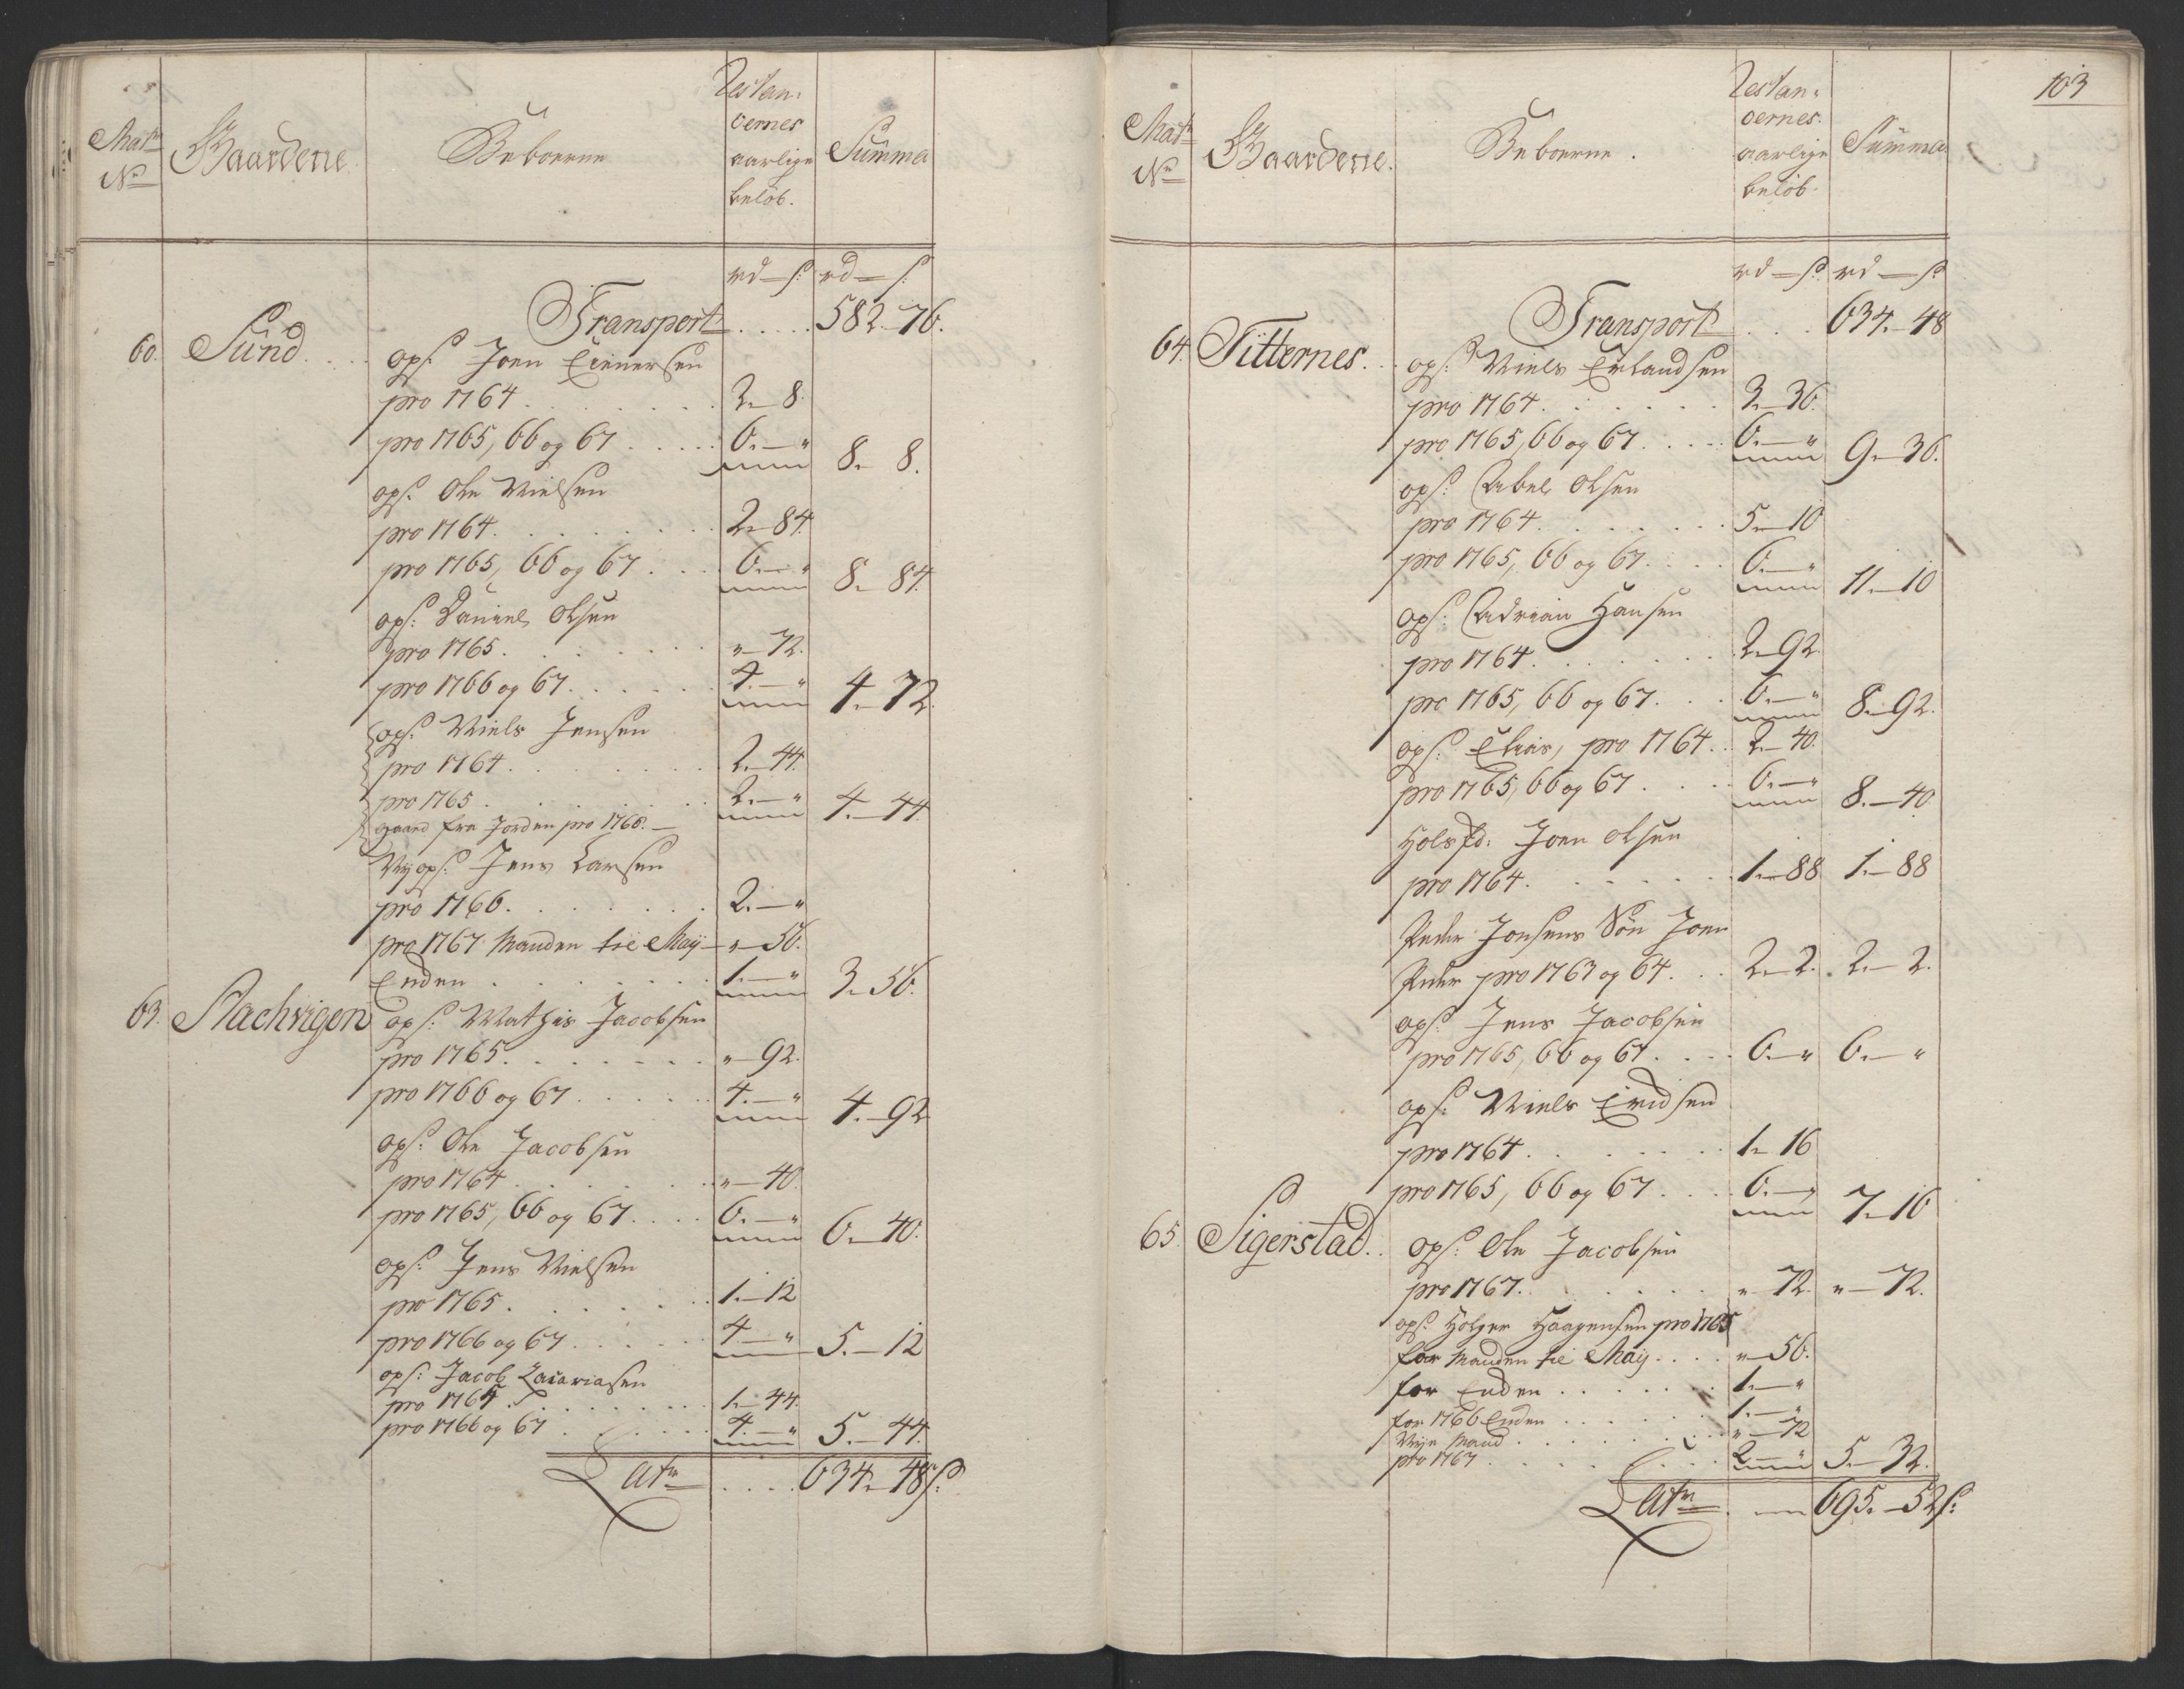 Matr
No
Gaardene
Beboerne
Restan-
cernes
aarlige
beløb.
Summa
rd — s: rd — s:
Transport . . . . . 582. 76.
60. Sund . . . ops: Joen Eienersen
pro 1764 . . . . . . 2. 8.
pro 1765, 66 og 67 . . . . . 6. — " 8. 8.
ops: Ole Nielsen
pro 1764 . . . . . . 2. 84.
pro 1765, 66 og 67 . . . 6. — " 8. 84.
ops: Daniel Olsen
pro 1765 . . . . . . " — 72.
pro 1766 og 67 . . . . . 4. — " 4. 72.
ops: Niels Jensen
pro 1764 . . . . . . 2. — 44.
pro 1765 . . . . . . 2. — " 4. — 44
gaaed fra Jorden pro 1766. —
Nye ops: Jens Larsen
pro 1766 . . . . . . 2. — "
pro 1767 Manden til Maij — " — 56.
Enden . . . . . . 1. — " 3. 56.
63. Stachvigen ops: Mathis Jacobsen
pro 1765 . . . . . . " — 92.
pro 1766 og 67 . . . . . 4. — " 4. — 92
ops: Ole Jacobsen
pro 1764 . . . . . . " — 40.
pro 1765, 66 og 67 . . . . 6. — " 6. — 40.
ops: Jens Nielsen
pro 1765 . . . . . . 1. — 12
pro 1766 og 67 . . . . . 4 — " 5. — 12
ops: Jacob Zacariasen
pro 1765 . . . . . . 1. — 44.
pro 1766 og 67 . . . . . 4. — " 5. — 44.
Latr . . . . 634. 48 s:
103
Matr
No
Gaardene.
Beboerne.
Restan-
cernes.
aarlige
beløb.
Summa
rd — s: rd — s:
Transport . . . 634. — 48
64. Titternes. . . ops: Niels Erlandsen
pro 1764 . . . . . . 3. — 36.
pro 1765, 66 og 67 . . . . 6. — " 9. — 36.
ops: Abel Olsen
pro 1764 . . . . . . 5. — 10
pro 1765, 66 og 67 . . . . 6. — " 11. — 10
ops: Adrian Hansen
pro 1764 . . . . . . 2. 92
pro 1765, 66 og 67 . . . 6. — " 8. — 92.
ops: Elias, pro 1764 . . 2. — 40.
pro 1765, 66 og 67 . . . 6. — " 8. — 40.
Joen Olsen
pro 1764 . . . . . . 1. — 88 1. — 88
Peder Jonsens Søn Joen
Peder pro 1763 og 64 . . . 2. — 2. 2. — 2.
ops: Jens Jacobsen
pro 1765, 66 og 67 . . . . 6. — " 6. — "
ops: Niels Eridsen
pro 1764 . . . . . . 1. 16
pro 1765, 66 og 67 . . . . 6. — " 7. — 16
65. Sigerstad . . ops: Ole Jacobsen
pro 1767 . . . . . . " — 72. " — 72.
ops: Holger Haagensen pro 1765
for Manden til Maij . . . . " — 56.
for Enden . . . . . . 1. — "
for 1766 Enden . . . . . . 1. — "
Nye Mand . . . . . . " — 72
pro 1767 . . . . . . 2. — " 5. — 32.
Latr . — 695. — 52 s: